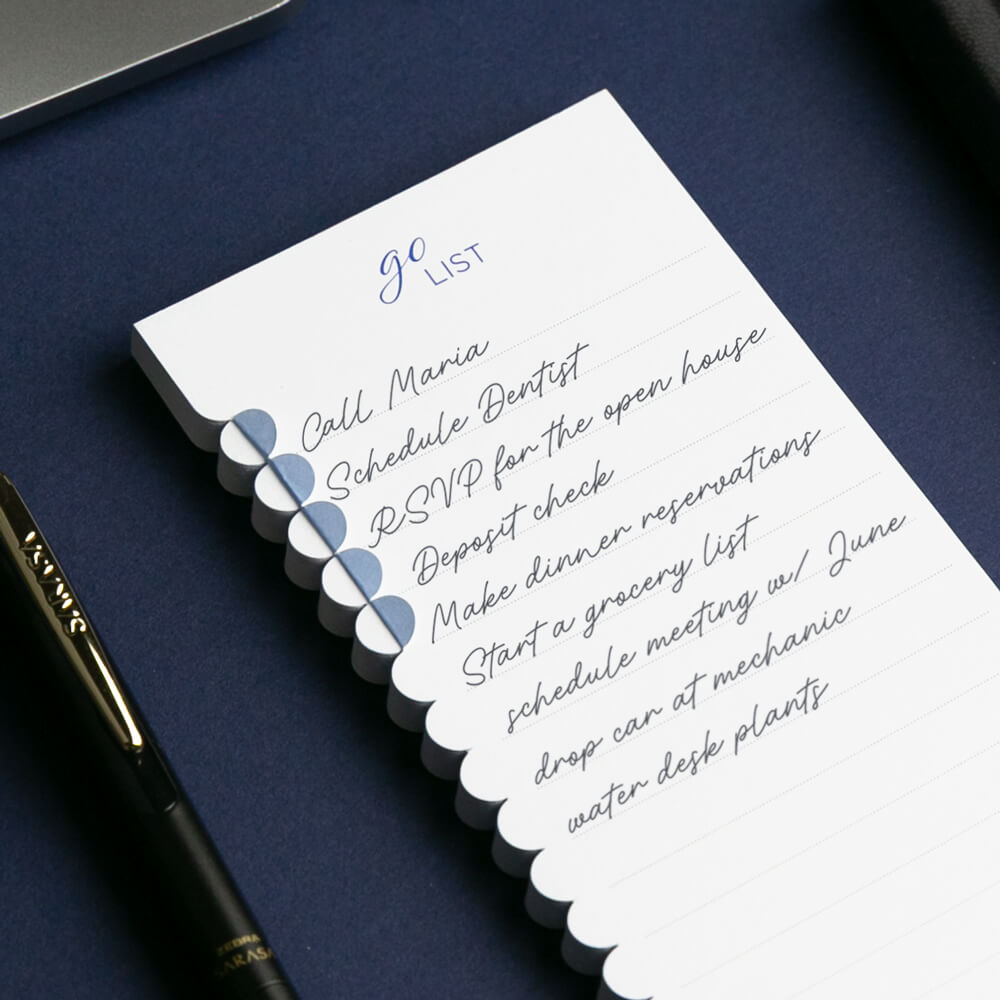 go
LIST
Call Maria
Schedule Dentist
RSVP for the open house
Deposit check
Make dinner reservations
Start a grocery list
schedule meeting w/ June
drop car at mechanic
water desk plants
SARASA
ZEBRA
SARASA